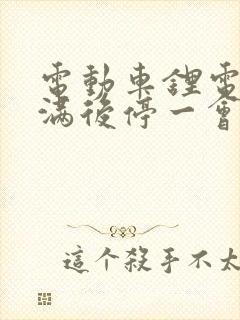 電動車鋰電
滿後停一會
這个殺手不太